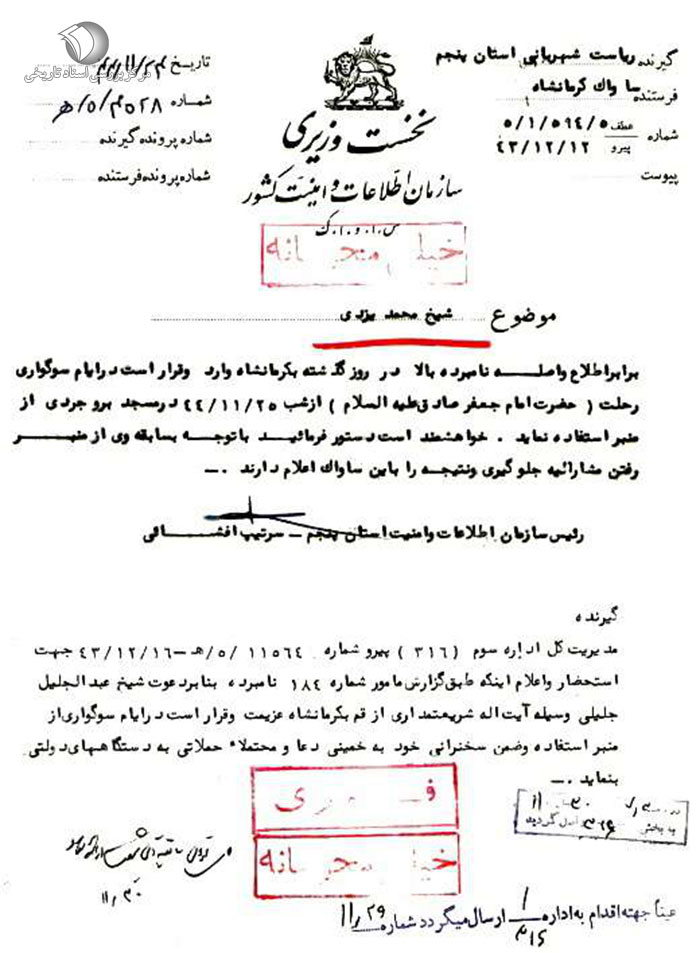 مرکز بررسی اسناد تاریخی
گیرنده ریاست شهربانی استان پنجم
فرستنده ساواک کرمانشاه
شماره عطف ۵/۱/۵۹۴/۵
پیرو ۴۳/۱۲/۱۲
پیوست
نخست وزیری
سازمان اطلاعات و امنیت کشور
س.ا.و.ا.ک
تاریخ ۴۴/۱۱/۲۴
شماره ۲۸ه۴/۵/ه
شماره پرونده گیرنده
شماره پرونده فرستنده
خیلی محرمانه
موضوع شیخ محمد یزدی
برابر اطلاع واصله نامبرده بالا در روز گذشته بکرمانشاه وارد وقرار است در ایام سوگواری
رحلت ( حضرت امام جعفر صادق علیه السلام ) از شب ۴۴/۱۱/۲۵ در مسجد بروجردی از
منبر استفاده نماید . خواهشمند است دستور فرمائید با توجه بسابقه وی از منبر
رفتن مشارالیه جلوگیری ونتیجه را باین ساواک اعلام دارند .ــ
رئیس سازمان اطلاعات وامنیت استان پنجم ــ سرتیپ افشائی
گیرنده
مدیریت کل اداره سوم (۳۱۶ ) پیرو شماره ۱۱۵۶۴ /۵/هـ ــ ۴۳/۱۲/۱۶ جهت
استحضار واعلام اینکه طبق گزارش مامور شماره ۱۸۴ نامبرده بنابر دعوت شیخ عبدالجلیل
جلیلی وسیله آیت اله شریعتمداری از قم بکرمانشاه عزیمت وقرار است در ایام سوگواری از
منبر استفاده وضمن سخنرانی خود به خمینی دعا و محتملاء حملاتی به دستگاههای دولتی
بنماید .ــ
فوری
خیلی محرمانه
به بخش ۳۱۶ واصل گردید
۱۱/۳۰
عیناً جهته اقدام به اداره ۱/۳۱۶ ارسال میگردد شماره ۱۱/۲۹